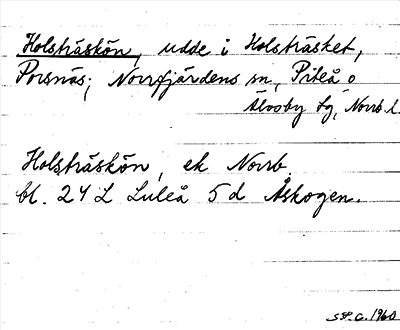 Holsträskön, udde i Holsträsket,
Porsnäs; Norrfjärdens sn, Piteå o
Älvsby tg, Norrb. l.
Holsträskön, ek Norrb.
bl. 24 L Luleå 5 d Åskogen.
SAP. G. 1960